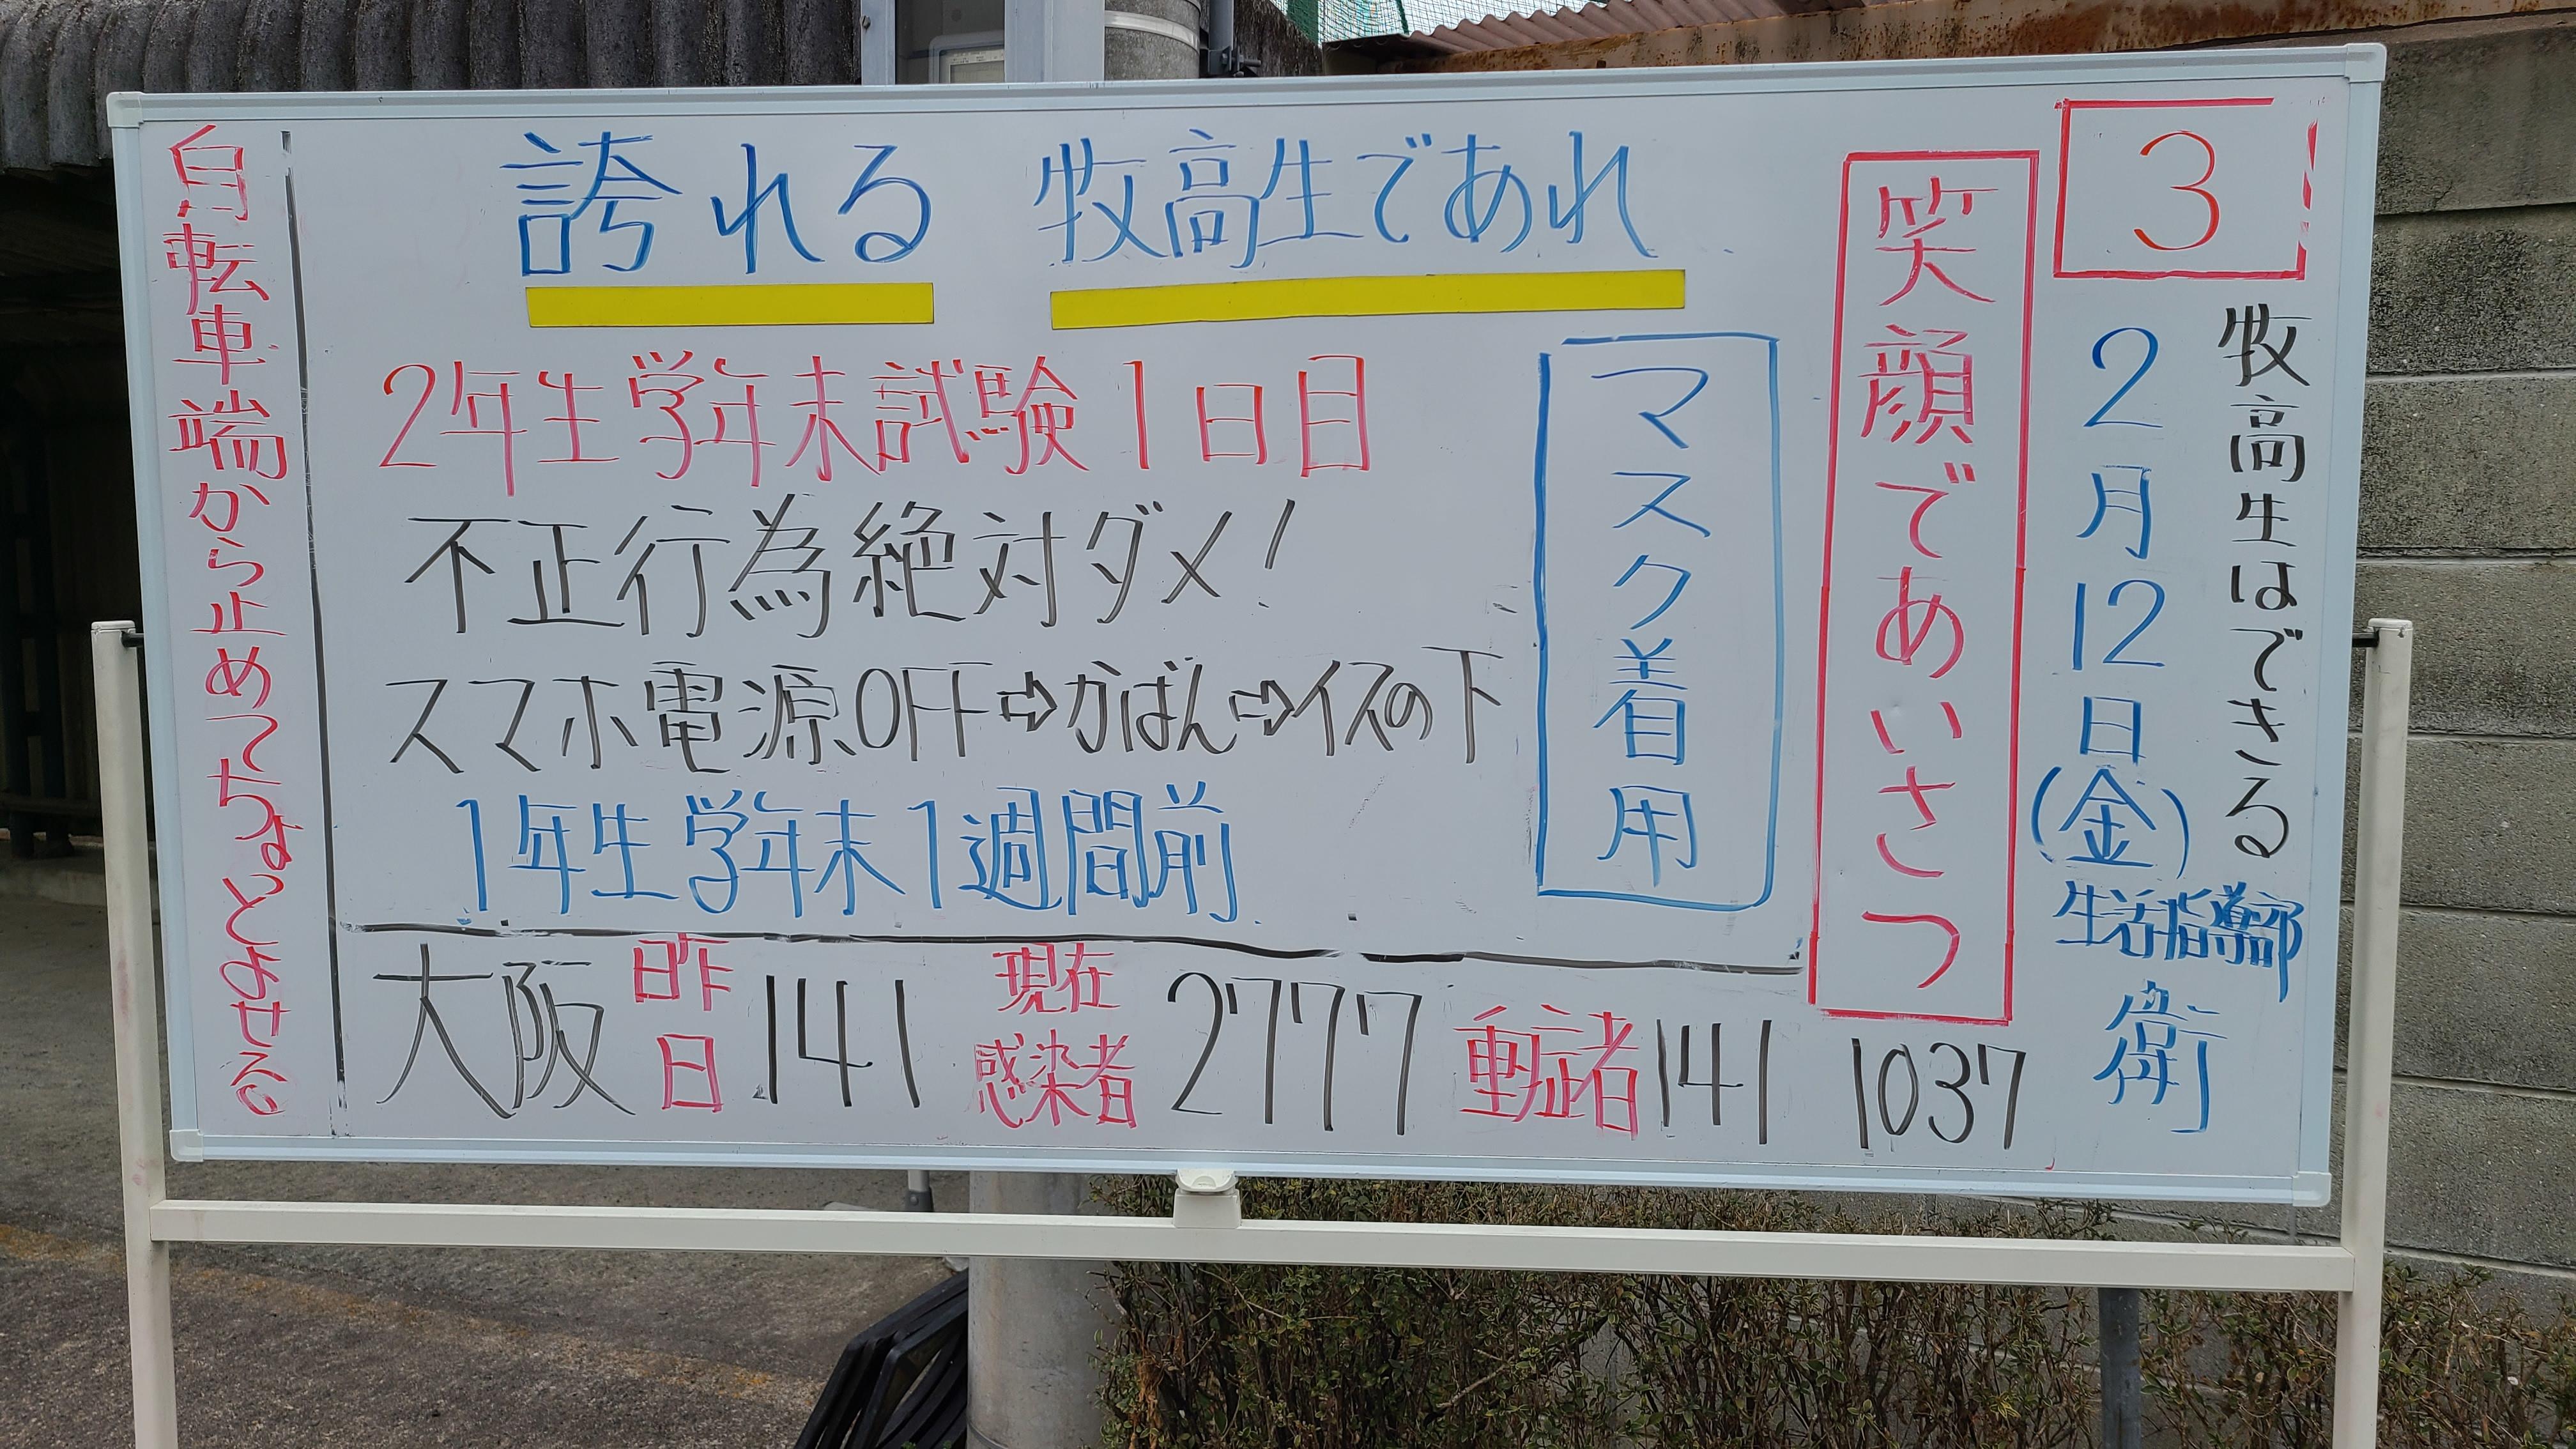 3
牧高生はできる
2月12日(金)
生活指導部
衛
笑顔であいさつ
マスク着用
誇れる 牧高生であれ
2年生学年末試験1日目
不正行為絶対ダメ!
スマホ電源OFF⇨かばん⇨イスの下
1年生学年末1週間前
大阪 昨日 141 現在感染者 2777 重症者 141 1037
自転車端から止めてちょっとよせる。